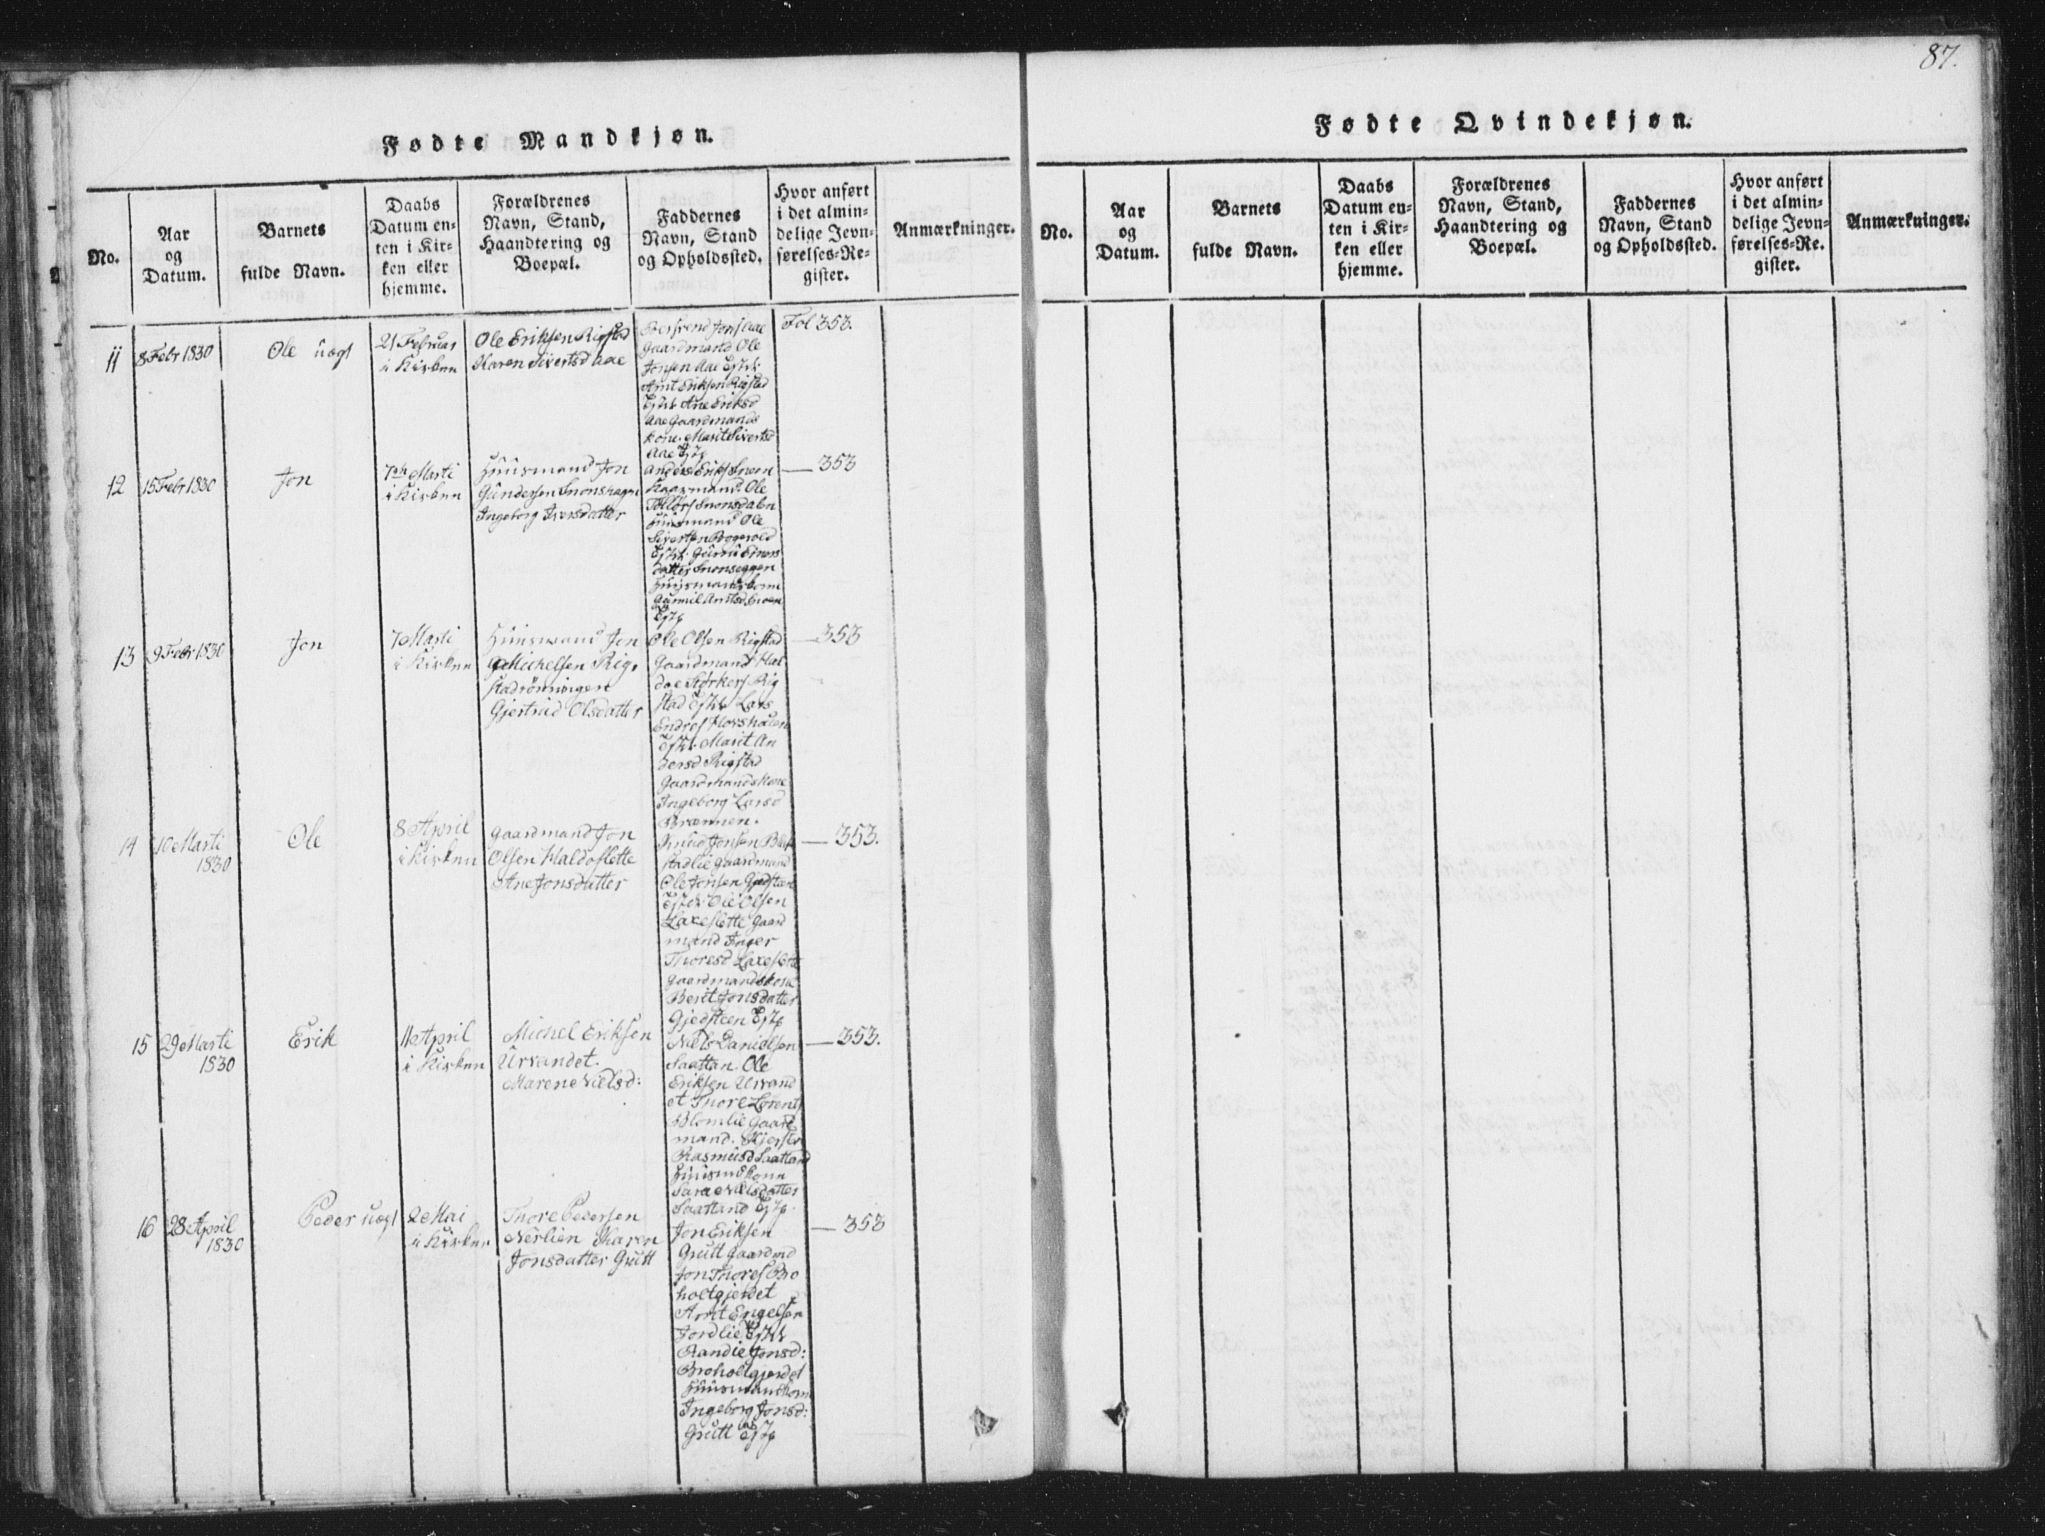 87.
Fødte Mandkjøn.
No.
Aar
og
Datum.
Barnets
fulde Navn.
Daabs
Datum en-
ten i Kir-
ken eller
hjemme.
Forældrenes
Navn, Stand,
Haandtering og
Boepæl.
Faddernes
Navn, Stand
og Opholdssted.
Hvor anført
i det almin-
delige Jevn-
førelses-Re-
gister.
Anmærkninger.
11
8 Febr 1830
Ole uægt
21 Februar
i Kirken
Ole Eriksen Rigstad
Karen Sivertsd Aae
Jons Aae
Gaardmand Ole
Jonsen Aae
Arnt Eriksen Rigstad
Ane Eriksd
Aae Gaardmands
kone. Marit Sivertsd
Aae
Fol 353.
12
15 Febr 1830
Jon
7de Marti
i Kirken
Huusmand Jon
Gundersen Snonshagen
Ingeborg Iversdatter
Anders Eriks Snoen
Gaarmand. Ole
Snonsdalen
Huusmand Ole
Sivertsen
datter Snonseggen
Huusmandskone
Gunnil Arntsd Snoen
353
13
9 Febr 1830
Jon
7 Marti
i Kirken
Huusmand Jon
Michelsen Rig-
stadrönningen
Gjertrud Olsdatter
Ole Olsen Rigstad
Gaardmand Hal-
doe Størkers Rig
stad Lars
Endres
Marit An
dersd Rigstad
Gaardmandskone
Ingeborg Larsd
Brænnen.
353
14
10 Marti
1830
Ole
8 April
i Kirken
Gaardmand Jon
Olsen Haldoslette
Ane Jonsdatter
Knud Jonsen
Gaardmand
Ole Jonsen Gjedsteen
Ole Olsen
Laxeslette Gaard
mand Inger
Thoresd Laxeslette
Gaardmandskone
Berit Jonsdatter
Gjedsteen
353.
15
29 Marti
1830
Erik
11 April
i Kirken
Michel Eriksen
Urvandet.
Maren Nielsd:
Niels Danielsen
Saattan. Ole
Eriksen Urvand
et Thore Lorents
Blomlie Gaard
mand.
Rasmusd Saatland
Huusmdkone
Sara Nielsdatter
Saatland
353.
16
28 April
1830
Peder uægt
2 Mai
i Kirken
Thore Pedersen
Nerlien Karen
Jonsdatter Grutt
Jon Eriksen
Grutt Gaardmd
Jon Thores Bro
holtgjerdet
Arnt Engelsen
Jordlie
Randie Jonsd:
Broholtgjerdet
Huusmandkone
Ingeborg Jonsd:
Grutt
353
Fødte Qvindekjøn.
No.
Aar
og
Datum.
Barnets
fulde Navn.
Daabs
Datum en-
ten i Kir-
ken eller
hjemme.
Forældrenes
Navn, Stand,
Haandtering og
Boepæl.
Faddernes
Navn, Stand
og Opholdssted.
Hvor anført
i det almin-
delige Jevn-
førelses-Re-
gister.
Anmærkninger.